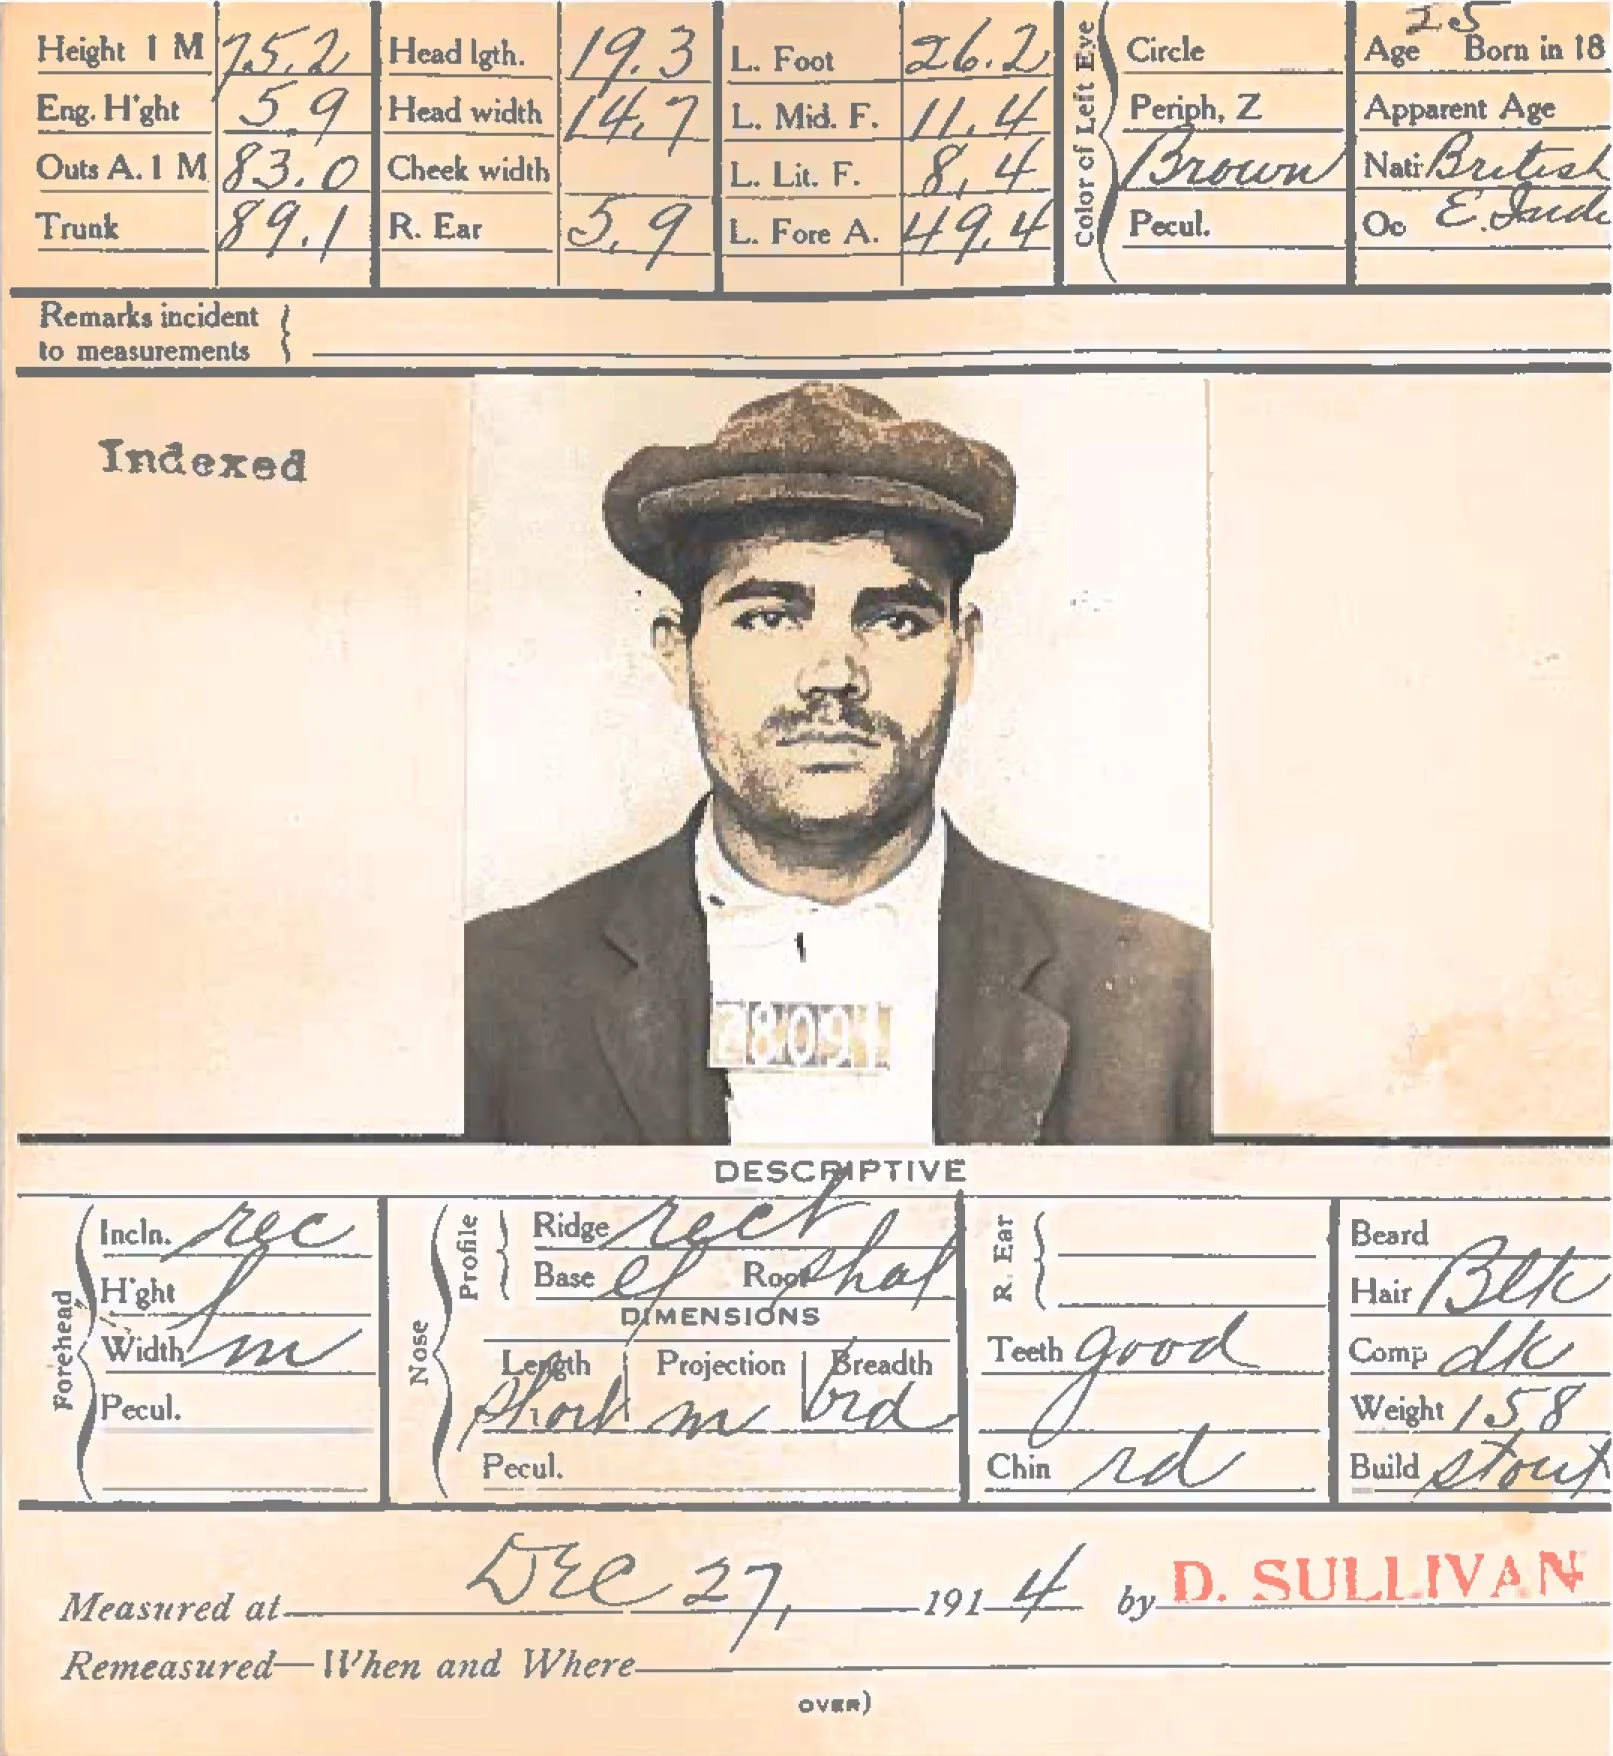 25
Height 1 M 75.2 Head lgth. 19.3 L. Foot 26.2 Circle Age Born in 18
Eng. H'ght 5 9 Head width 14.7 L. Mid. F. 11.4 Periph, Z Apparent Age
Outs A. 1 M 83.0 Cheek width L. Lit. F. 8.4 Brown Nati British
Trunk 89.1 R. Ear 5.9 L. Fore A. 49.4 Pecul. Oc E. Indi
Color of Left Eye
Remarks incident
to measurements
Indexed
DESCRIPTIVE
Forehead
Incln. rec
H'ght l
Width m
Pecul.
Nose
Profile
Ridge rect
Base el Root shal
DIMENSIONS
Length Projection Breadth
short m brd
Pecul.
R. Ear
Teeth good
Chin rd
Beard
Hair Blk
Comp dk
Weight 158
Build stout
Measured at Dec 27, 1914 by D. SULLIVAN
Remeasured—When and Where
OVER)